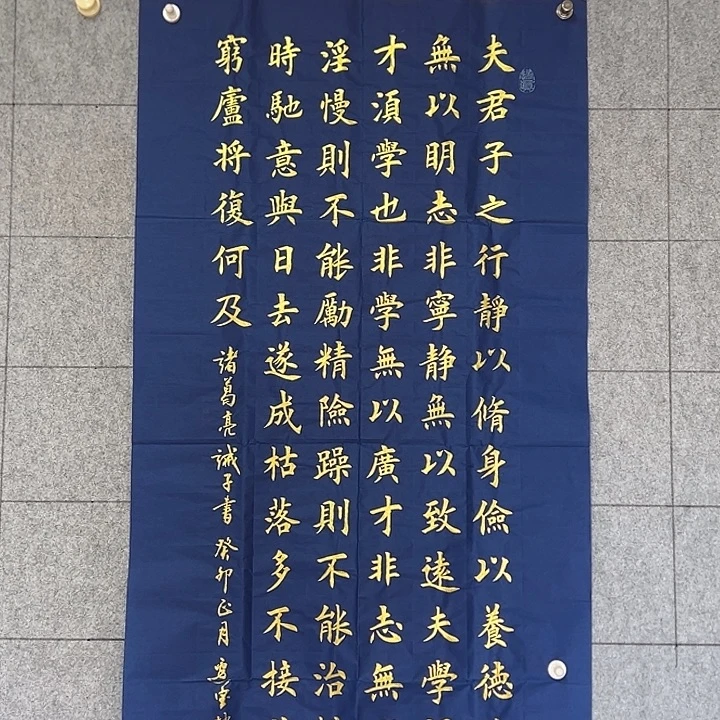 夫君子之行靜以脩身儉以養德
無以明志非寧靜無以致遠夫學
才須學也非學無以廣才非志無
淫慢則不能勵精險躁則不能治
時馳意與日去遂成枯落多不接
窮廬將復何及
諸葛亮誡子書癸卯正月